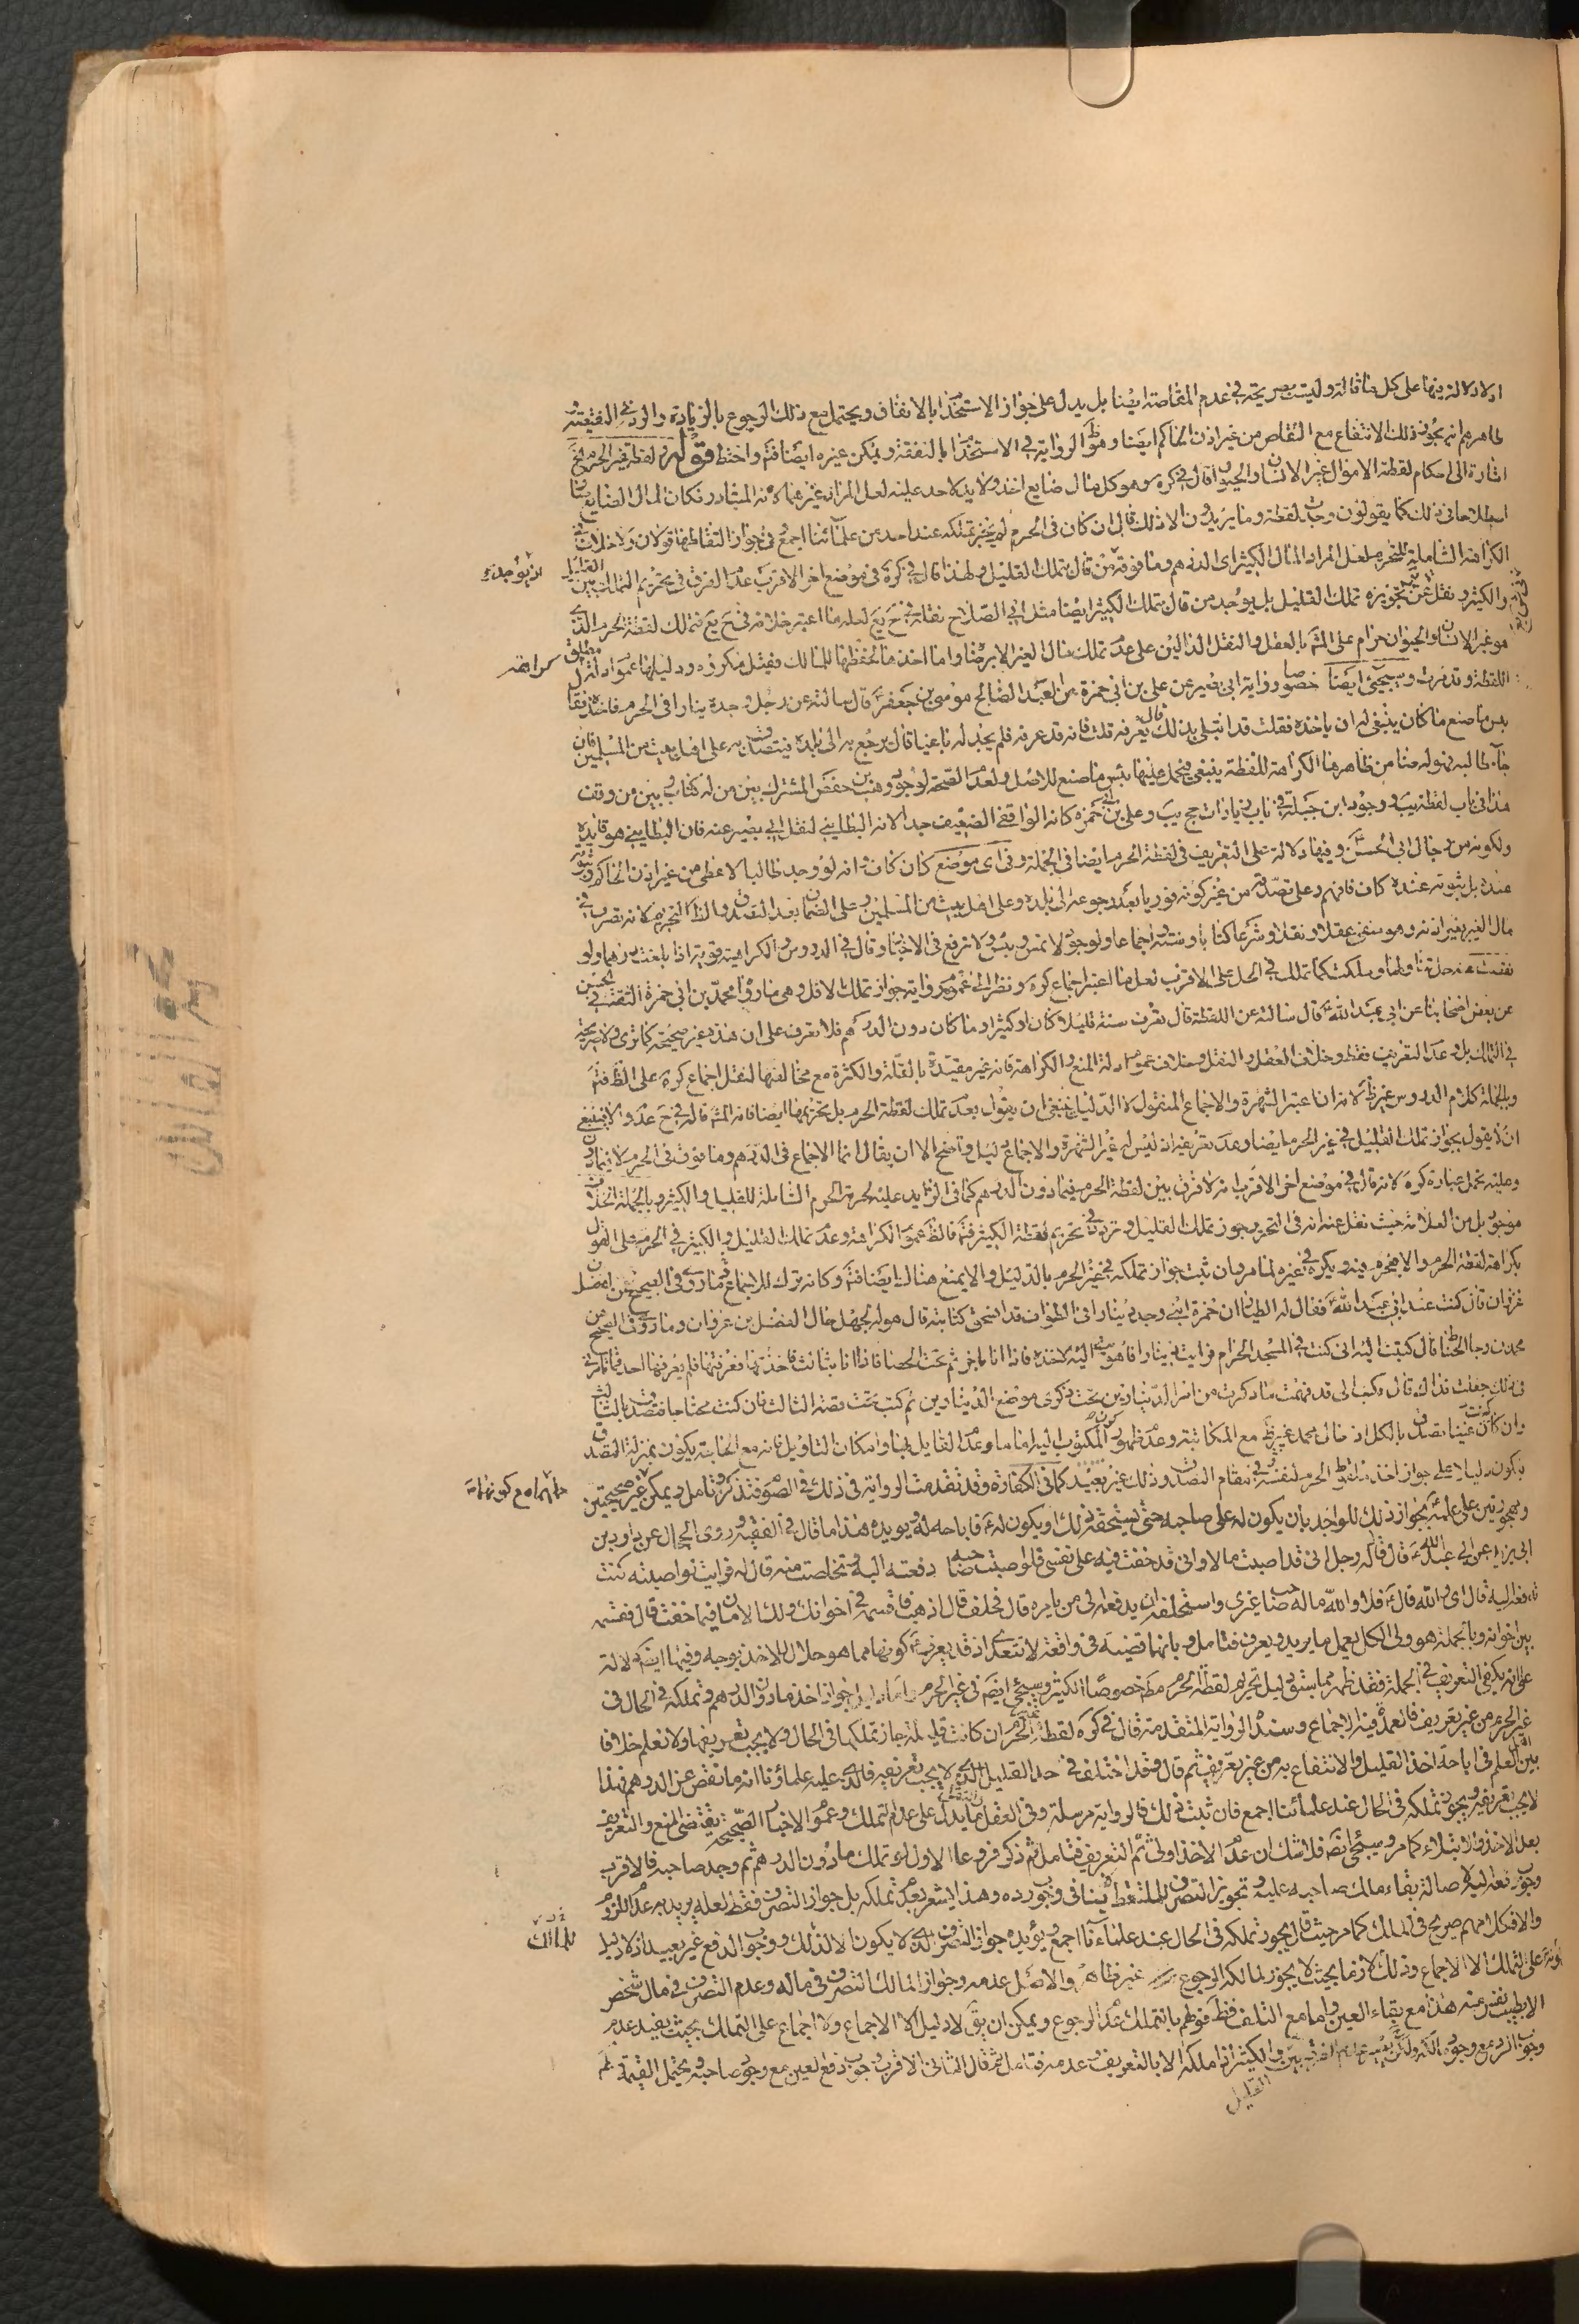 اولا دلالة فيها على كل ما قاله وليست بصريحة في عدم المقاصة ايضا بل يدل على جواز الاستخدام بالانفاق ويحتمل مع ذلك الرجوع بالزيادة والرد في النقيصة
ظاهرهم انه يجوز ذلك الانتفاع مع التقاص من غير اذن الحاكم ايضا وهو ظ الرواية في الاستخدام بالنفقة ويمكن غيره ايضا فتم واحتط قوله لقطة غير الحرم
اشارة الى احكام لقطة الاموال غير الانسان والحيوان قال في كره وهو كل مال ضايع اخذ ولا يد لاحد عليه لعل المراد غيرهما لانه المتبادر فكان المال الضايع
اصطلاحا في ذلك كما يقولون وجاب لقطة وما يريدون الا ذلك قال ان كان في الحرم لم يجز تملكه عند احد من علمائنا اجمع وفي جواز التقاطها قولان ولا خلاف في
الكراهة الشاملة للتحريم لعل المراد المال الكثير اى الدرهم وما فوقه من قال بتملك القليل ولهذا قال في كره في موضع اخر الاقرب عدم الفرق في تحريم التملك بين القليل
والكثير ونقل عن تجويزه تملك القليل بل يوجد من قال بتملك الكثير ايضا مثل ابى الصلاح نقله في
هو غير الانسان والحيوان حرام على المشهور بالعقل والنقل الدالين على عدم تملك مال الغير الا برضا واما اخذها لحفظها للمالك فقيل مكروه ودليلها عموم ادلة
اللقطة وقد مرت وسيجيء ايضا خصوصا رواية ابى بصير عن على بن ابى حمزة عن العبد الصالح موسى بن جعفر ع قال سالته عن رجل وجد دينارا في الحرم فاخذه فقال
بئس ما صنع ما كان ينبغى له ان ياخذه فقلت قد ابتلى بذلك قال يعرفه قلت فانه قد عرفه فلم يجد له باغيا قال يرجع به الى بلده فيتصدق به على اهل بيت من المسلمين فان
جاء طالبه فهو له ضامن ظاهرها الكراهة للفظة ينبغى فيحمل عليها بئس ما صنع للاصل ولعدم الصحة لوجود وهيب بن حفص المشترك بين من له كتاب وبين من وقف
هذا في باب لقطة يب ووجود ابن جبلة في باب زيادات حج يب وعلى بن ابى حمزة كانه الواقفى الضعيف جدا لانه البطاينى لنقل ابى بصير عنه فان البطاينى هو قايده
ولكونه من رجال ابى الحسن ع وفيها دلالة على التعريف في لقطة الحرم ايضا في الجملة وفي اى موضع كان كاف وانه لو وجد طالبا لاعطى من غير اذن الحاكم وثبوت
عنده بل بثبوته عنده كان فافهم وعلى تصدقه من غير كونه فوريا بعد رجوعه الى بلده وعلى اهل بيت من المسلمين وعلى الضمان بعد التصدق والظ التحريم لانه تصرف في
مال الغير بغير اذنه وهو ممنوع عقلا ونقلا وشرعا كتابا وسنة واجماعا ولوجود لا تمس وبئس ولا ترفع في الاخبار وقال في الدروس والكراهية قوية اذا بلغت درهما ولو
نقصت عنه حل تناولها وملكت كما تملك في الحل على الاقرب لعل ما اعتبر اجماع كره ونظر الى عموم رواية جواز تملك الاقل وهى ما رواه محمد بن ابى حمزة الثقة في الحسن
عن بعض اصحابنا عن ابى عبد الله ع قال سالته عن اللقطة قال تعرف سنة قليلا كان او كثيرا وما كان دون الدرهم فلا تعرف على ان هذه غير صحيحة كما ترى ولا صريحة
في التملك بل في عدم التعريف فقط وخلاف العقل والنقل وخلاف عموم ادلة المنع والكراهة فانه غير مقيدة بالقلة والكثرة مع مخالفتها لنقل اجماع كره على الظ فتم
وبالجملة كلام الدروس غير ظ لانه ان اعتبر الشهرة والاجماع المنقول لا الدليل ينبغى ان يقول بعدم تملك لقطة الحرم بل بتحريمها ايضا
ان لا يقول بجواز تملك القليل في غير الحرم ايضا وعدم تعريفه اذ ليس له غير الشهرة والاجماع دليل واضح الا ان يقال انما الاجماع في الدرهم وما فوق في الحرم
وعليه تحمل عبارة كره لانه قال في موضع اخر الاقرب انه لا فرق بين لقطة الحرم فيما دون الدرهم كما في الزايد عليه لحرمة الحرم الشاملة للقليل والكثير وبالجملة الخلاف
موجود بل من العلامة حيث نقل عنه انه في التحرير وجوز تملك القليل وتردد في تحريم لقطة الكثير فتم فالظ عموم الكراهة وعدم تملك القليل والكثير في الحرم على القول
بكراهة لقطة الحرم والا فيحرم فيه ويكره في غيره لما مر وان ثبت جواز تملكه في غير الحرم بالدليل والا يمنع هناك ايضا فتم وكانه ترك للاجماع ما روى في الصحيح عن الفضل
غزوان قال كنت عند ابى عبد الله ع فقال له الطيار ان حمزة ابنى وجد دينارا في الطواف قد انسحق كتابته قال هو له لجهل حال الفضل بن غزوان وما روى في الصحيح عن
محمد بن رجا الخياط قال كتبت اليه انى كنت في المسجد الحرام فرايت دينارا فاهويت اليه لاخذه فاذا انا باخر ثم بحثت الحصا فاذا انا بثالث فاخذتها فعرفتها فلم يعرفها احد فما ترى
في ذلك جعلت فداك قال فكتب الى قد فهمت ما ذكرت من امر الدينارين تحت ذكرى موضع الدينارين ثم كتب تحت قصة الثالث فان كنت محتاجا فتصدق بالثالث
وان كنت غنيا تصدق بالكل اذ حال محمد غير ظ مع المكاتبة وعدم ظهور كون المكتوب اليه اماما وعدم القايل بها وامكان التاويل فانه مع الحاجة يكون بمنزلة التصدق
فيكون دليلا على جواز اخذ ملتقط الحرم لنفسه في مقام التصدق وذلك غير بعيد كما في الكفارة وقد تقدمت الرواية في ذلك في الصوم فتذكر وتامل ويمكن غير صحيحتين
ويجوز تنزيل على علمه ع بجواز ذلك للواجد بان يكون له على صاحبه حق يستحقه ذلك او يكون له ع فاباحه له ويويده هذا ما قال في الفقيه وروى الحجال عن داود بن
ابى يزيد عن ابى عبد الله ع قال قال له رجل انى قد اصبت مالا وانى قد خفت فيه على نفسى فلو اصبت صاحبه دفعته اليه وتخلصت منه قال له فو الله لو اصبته كنت
تدفعه اليه قال اى والله قال ع فلا والله ما له صاحب غيرى واستحلفه ان يدفعه الى من يامره قال فحلف قال اذهب فاقسمه في اخوانك ولك الامان فيما خفت قال فقسمه
بين اخوانه وبالجملة هو ولى الكل يعمل ما يريد ويعرف فتامل وبانها قضية في واقعة لا تتعدى اذ قد يعرف ع كونها مما هو حلال للاخذ بوجه وفيها ايضا دلالة
على انه يكفى التعريف في الجملة فقد ظهر مما سبق دليل تحريم لقطة الحرم مط خصوصا الكثير وسيجيء ايضا في غير الحرم واما دليل جواز اخذ ما دون الدرهم وتملكه في الحال في
غير الحرم من غير تعريف فالعمدة فيه الاجماع وسند الرواية المتقدمة قال في كره لقطة غير الحرم ان كانت قليلة جاز تملكها في الحال ولا يجب تعريفها ولا نعلم خلافا
بين اهل العلم في اباحة اخذ القليل والانتفاع به من غير تعريف ثم قال وقد اختلف في حد القليل الذى لا يجب تعريفه فالذى عليه علماؤنا انه ما نقص عن الدرهم فهذا
لا يجب تعريفه ويجوز تملكه في الحال عند علمائنا اجمع فان ثبت ذلك فالرواية مرسلة وفي العقل ما يدل على عدم التملك وعموم الاخبار الصحيحة يقتضى المنع والتعريف
بعد الاخذ والابتلاء كما مر وسيجيء ايضا فلا شك ان عدم الاخذ اولى ثم التعريف فتامل ثم ذكر فروعا الاول لو تملك ما دون الدرهم ثم وجد صاحبه فالاقرب
وجوب دفعه اليه لاصالة بقاء ملك صاحبه عليه وتجويز التصرف للملتقط لا ينافى وجوب رده وهذا يشعر بعدم تملكه بل جواز التصرف فقط لعله يريد به عدم اللزوم
والا فكلامهم صريح في الملك كما مر حيث قال يجوز تملكه في الحال عند علمائنا اجمع ويؤيده جواز التصرف الذى لا يكون الا لذلك ووجوب الدفع غير بعيد اذ لا دليل
على التملك الا الاجماع وذلك لازما بحيث لا يجوز لمالكه الرجوع غير ظاهر والاصل عدمه وجواز المالك التصرف في ماله وعدم التصرف في مال شخص
الا بطيب نفس عنه هذا مع بقاء العين واما مع التلف فظ قولهم بالتملك عدم الرجوع ويمكن ان يق لا دليل الا الاجماع ولا اجماع على التملك بحيث يفيد عدم
وجوب الرد مع وجود المالك بين القليل والكثير اذا ملكه الا بالتعريف وعدمه فتامل ثم قال الثانى الاقرب وجوب دفع العين مع وجود صاحبه ويحتمل القيمة